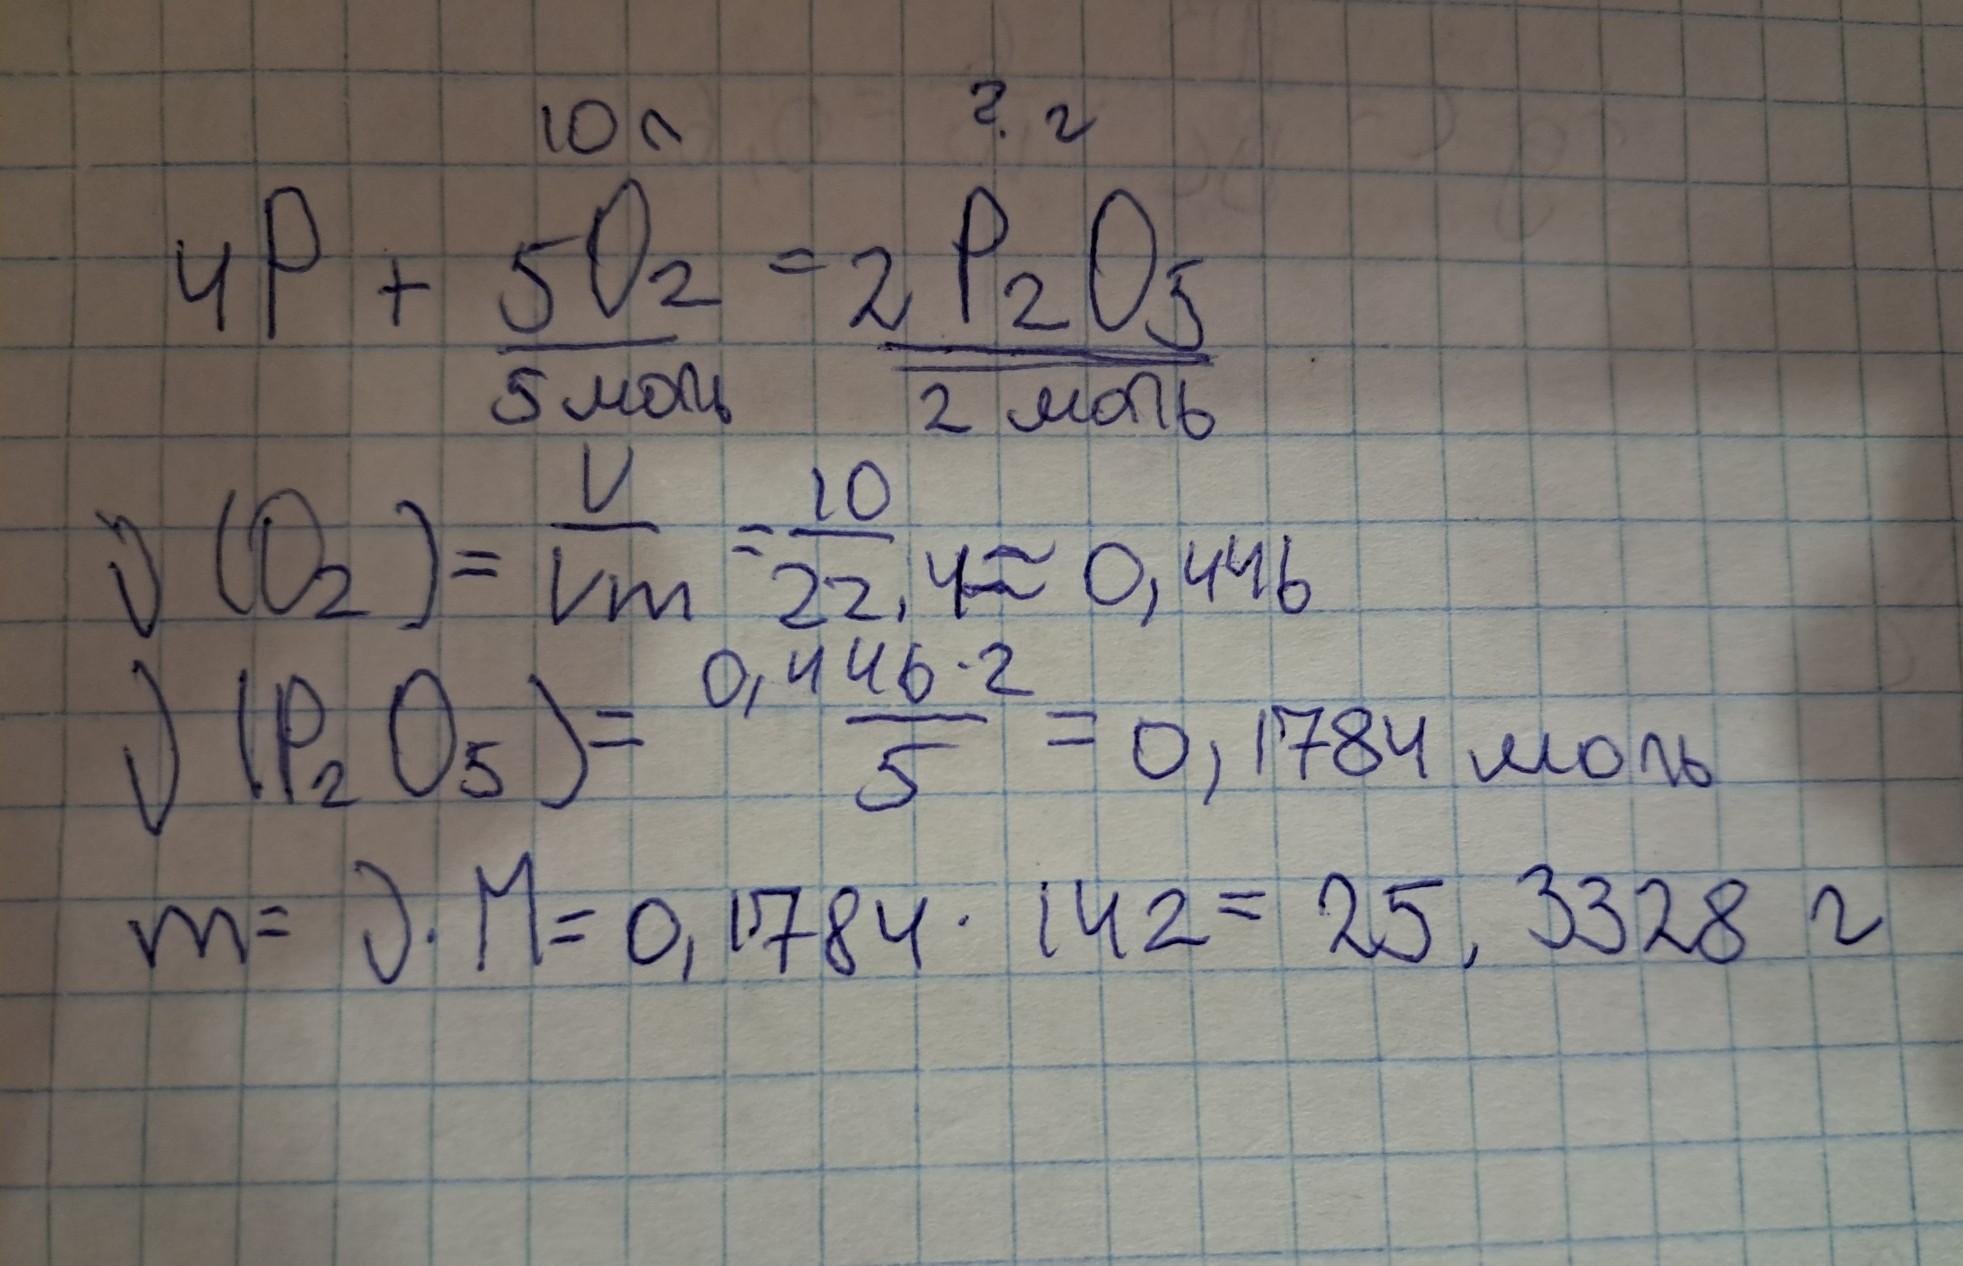 10л ? г
4P + 5O₂ = 2P₂O₅
5 моль 2 моль
ν(O₂) = V/Vm = 10/22,4 ≈ 0,446
ν(P₂O₅) = 0,446·2/5 = 0,1784 моль
m = ν·M = 0,1784 · 142 = 25,3328 г